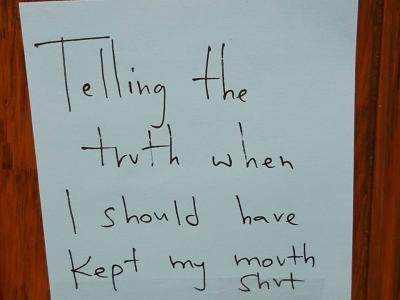 Telling the
truth when
I should have
Kept my mouth
shut